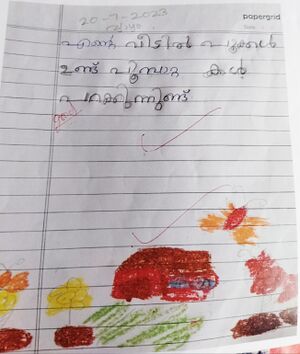 papergrid
20-7-2023
വ്യാഴം
എന്റെ വീടിൽ പൂക്കൾ
ഉണ്ട് പൂമ്പാറ്റ കൾ
പറക്കുന്നുണ്ട്
good